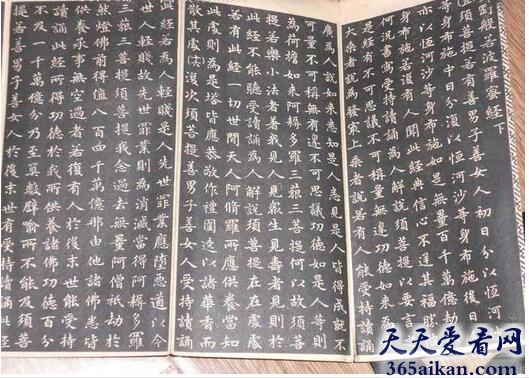 剛般若波羅蜜經下
須菩提若有善男子善女人初日分以恒河
等身布施中日分復以恒河沙等身布施後日
亦以恒河沙等身布施如是無量百千萬億劫
身布施若復有人聞此經典信心不逆其福勝
何況書寫受持讀誦為人解說須菩提以要言
是經有不可思議不可稱量無邊功德如來為發
大乘者說為發最上乘者說若有人能受持讀誦
廣為人說如來悉知是人悉見是人皆得成就不
可量不可稱無有邊不可思議功德如是人等則
為荷擔如來阿耨多羅三藐三菩提何以故須菩
提若樂小法者著我見人見眾生見壽者見則於
此經不能聽受讀誦為人解說須菩提在在處處
若有此經一切世間天人阿脩羅所應供養當知
此處則為是塔皆應恭敬作禮圍遶以諸華香而
散其處復次須菩提善男子善女人受持讀誦
此經若為人輕賤是人先世罪業應墮惡道以今
世人輕賤故先世罪業則為消滅當得阿耨多羅
三藐三菩提須菩提我念過去無量阿僧祇劫於
然燈佛前得值八百四千萬億那由他諸佛悉皆
供養承事無空過者若復有人於後末世能受持
讀誦此經所得功德於我所供養諸佛功德百分
不及一千萬億分乃至算數譬喻所不能及須菩
提若善男子善女人於後末世有受持讀誦此經
天天爱看网
365aikan.com